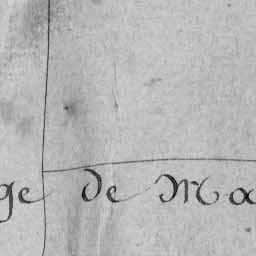 ge de Ma